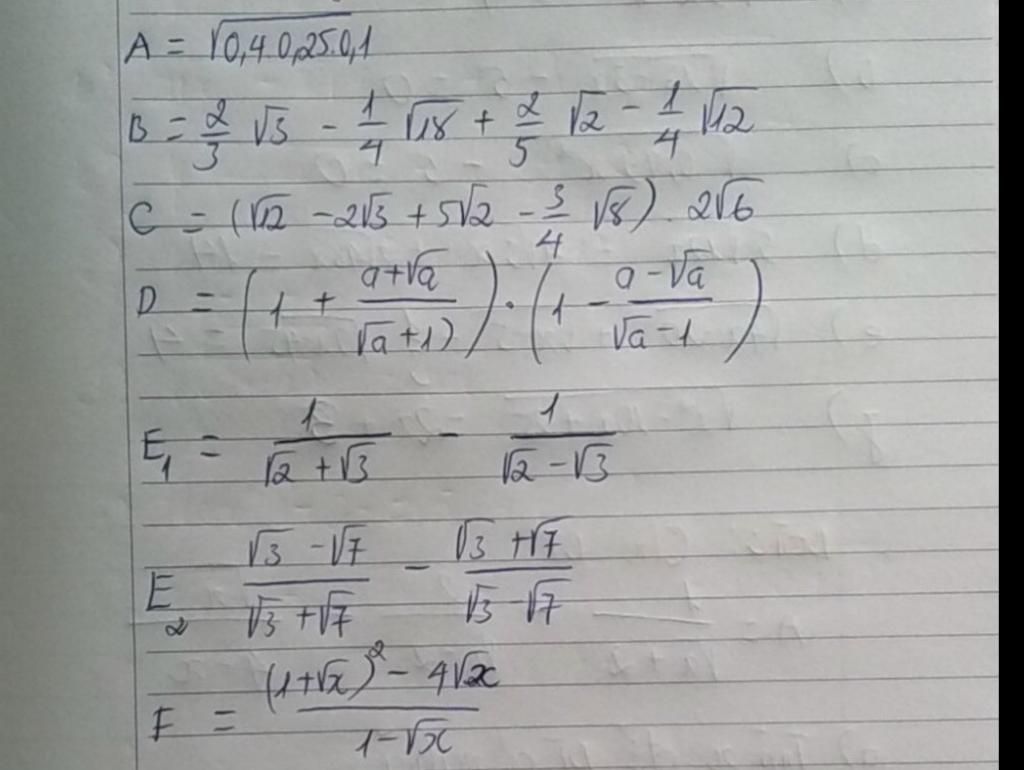 A = √0,4.0,25.0,1
B = 2/3 √3 - 1/4 √18 + 2/5 √2 - 1/4 √12
C = (√12 - 2√3 + 5√2 - 3/4 √8) . 2√6
D = (1 + (a+√a)/(√a+1))) · (1 - (a-√a)/(√a-1))
E₁ = 1/(√2+√3) - 1/(√2-√3)
E₂ (√3-√7)/(√3+√7) - (√3+√7)/(√3-√7)
F = ((1+√x)² - 4√x)/(1-√x)